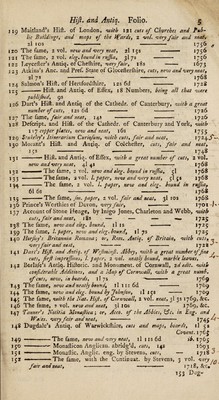 Hist. and Antiq. Folio. 5
119 Maitland's Hist. of London, with 121 cuts of Churches and Publ-
lic Buildings, and maps of the Wards, 2 vol. very fair and neat,
2l 10s 1756
120 The same, 2 vol. new and very neat, 2l 15s 1756
121 The same, 2 vol. eleg. bound in russia, 3l 7s 1756
122 Leycester's Antiq. of Cheshire, very fair, 18s 1673
123 Atkins's Anc. and Pres. State of Glocestershire, cuts, new and very neat,
2l 7s 1768
124 Salmon's Hist. of Hertfordshire, 12s 6d 1728
125 Hist. and Antiq. of Essex, 18 Numbers, being all that were
published,
126 Dart's Hist. and Antiq. of the Cathedr. of Canterbury, with a great
number of cuts, 12s 6d 1726
127 The same, fair and neat, 14s
128 Descript. and Hist. of the Cathedr. of Canterbury and York, with
117 copper plates, new and neat, 16s 1755
129 Stukeley's Itinerarium Curiosum, with cuts, fair and neat, 1724
130 Morant's Hist. and Antiq. of Colchester, cuts, fair and neat,
15s 1748
131 Hist. and Antiq. of Essex, with a great number of cuts, 2 vol.
new and very neat, 4l 4s 1768
132 The same, 2 vol. new and eleg. bound in russia, 1768
133 The same, 2 vol. l. paper, new and very neat, 1768
134 The same, 2 vol. l. paper, new and eleg. bound in russia,
6l 6s 1768
135 The same, fm. paper, 2 vol. fair and neat, 3l 10s 1768
136 Prince's Worthies of Devon, very fair, 1701
137 Account of Stone Henge, by Inigo Jones, Charleton and Webb, with
cuts, fair and neat, 18s 1725
138 The same, new and eleg. bound, 1l 1s
139 The same, l. paper, new and eleg. bound, 1l 7s 1725
140 Horsley's Britannia Romana; or, Rom. Antiq. of Britain, with cuts,
very fair, 1732
141 Dart's Hist. and Antiq. of Westminster Abbey, with a great number of fine
cuts, first impressions, l. paper, 2 vol. neatly bound, marble leaves,
142 Borlase's Antiq. Histor. and Monument. of Cornwall, 2d edit. with
considerable Additions, and a Map of Cornwall, with a great number
of cuts, new, in boards, 1l 7s 1769
143 The same, new and neatly bound, 1l 11s 6d 1769
144 The same, new and eleg. bound by Johnson, 2l 1769
145 The same, with the Nat. Hist. of Cornwall, 2 vol. neat, 3l 3s 1769, &c.
146 The same, 2 vol. new and neat, 3l 10s 1769, &c.
147 Tanner's Notitia Monastica; or, Acct. of the Abbies, &c. in Eng. and
Wales. very fair and neat, 1744
148 Dugdale's Antiq. of Warwickshire, cuts and maps, boards, 1l 5s
Covent. 1765
149 The same, new and very neat, 1l 11s 6d ib. 1765
150 Monasticon Anglican. abridg'd, cuts, 14s 1693
151 Monastic. Anglic. eng. by Stevens, cuts, 1718
152 The same, with the Continuat. by Stevens, 3 vol. very
fair and neat, 1718, &c.
153 Dug-